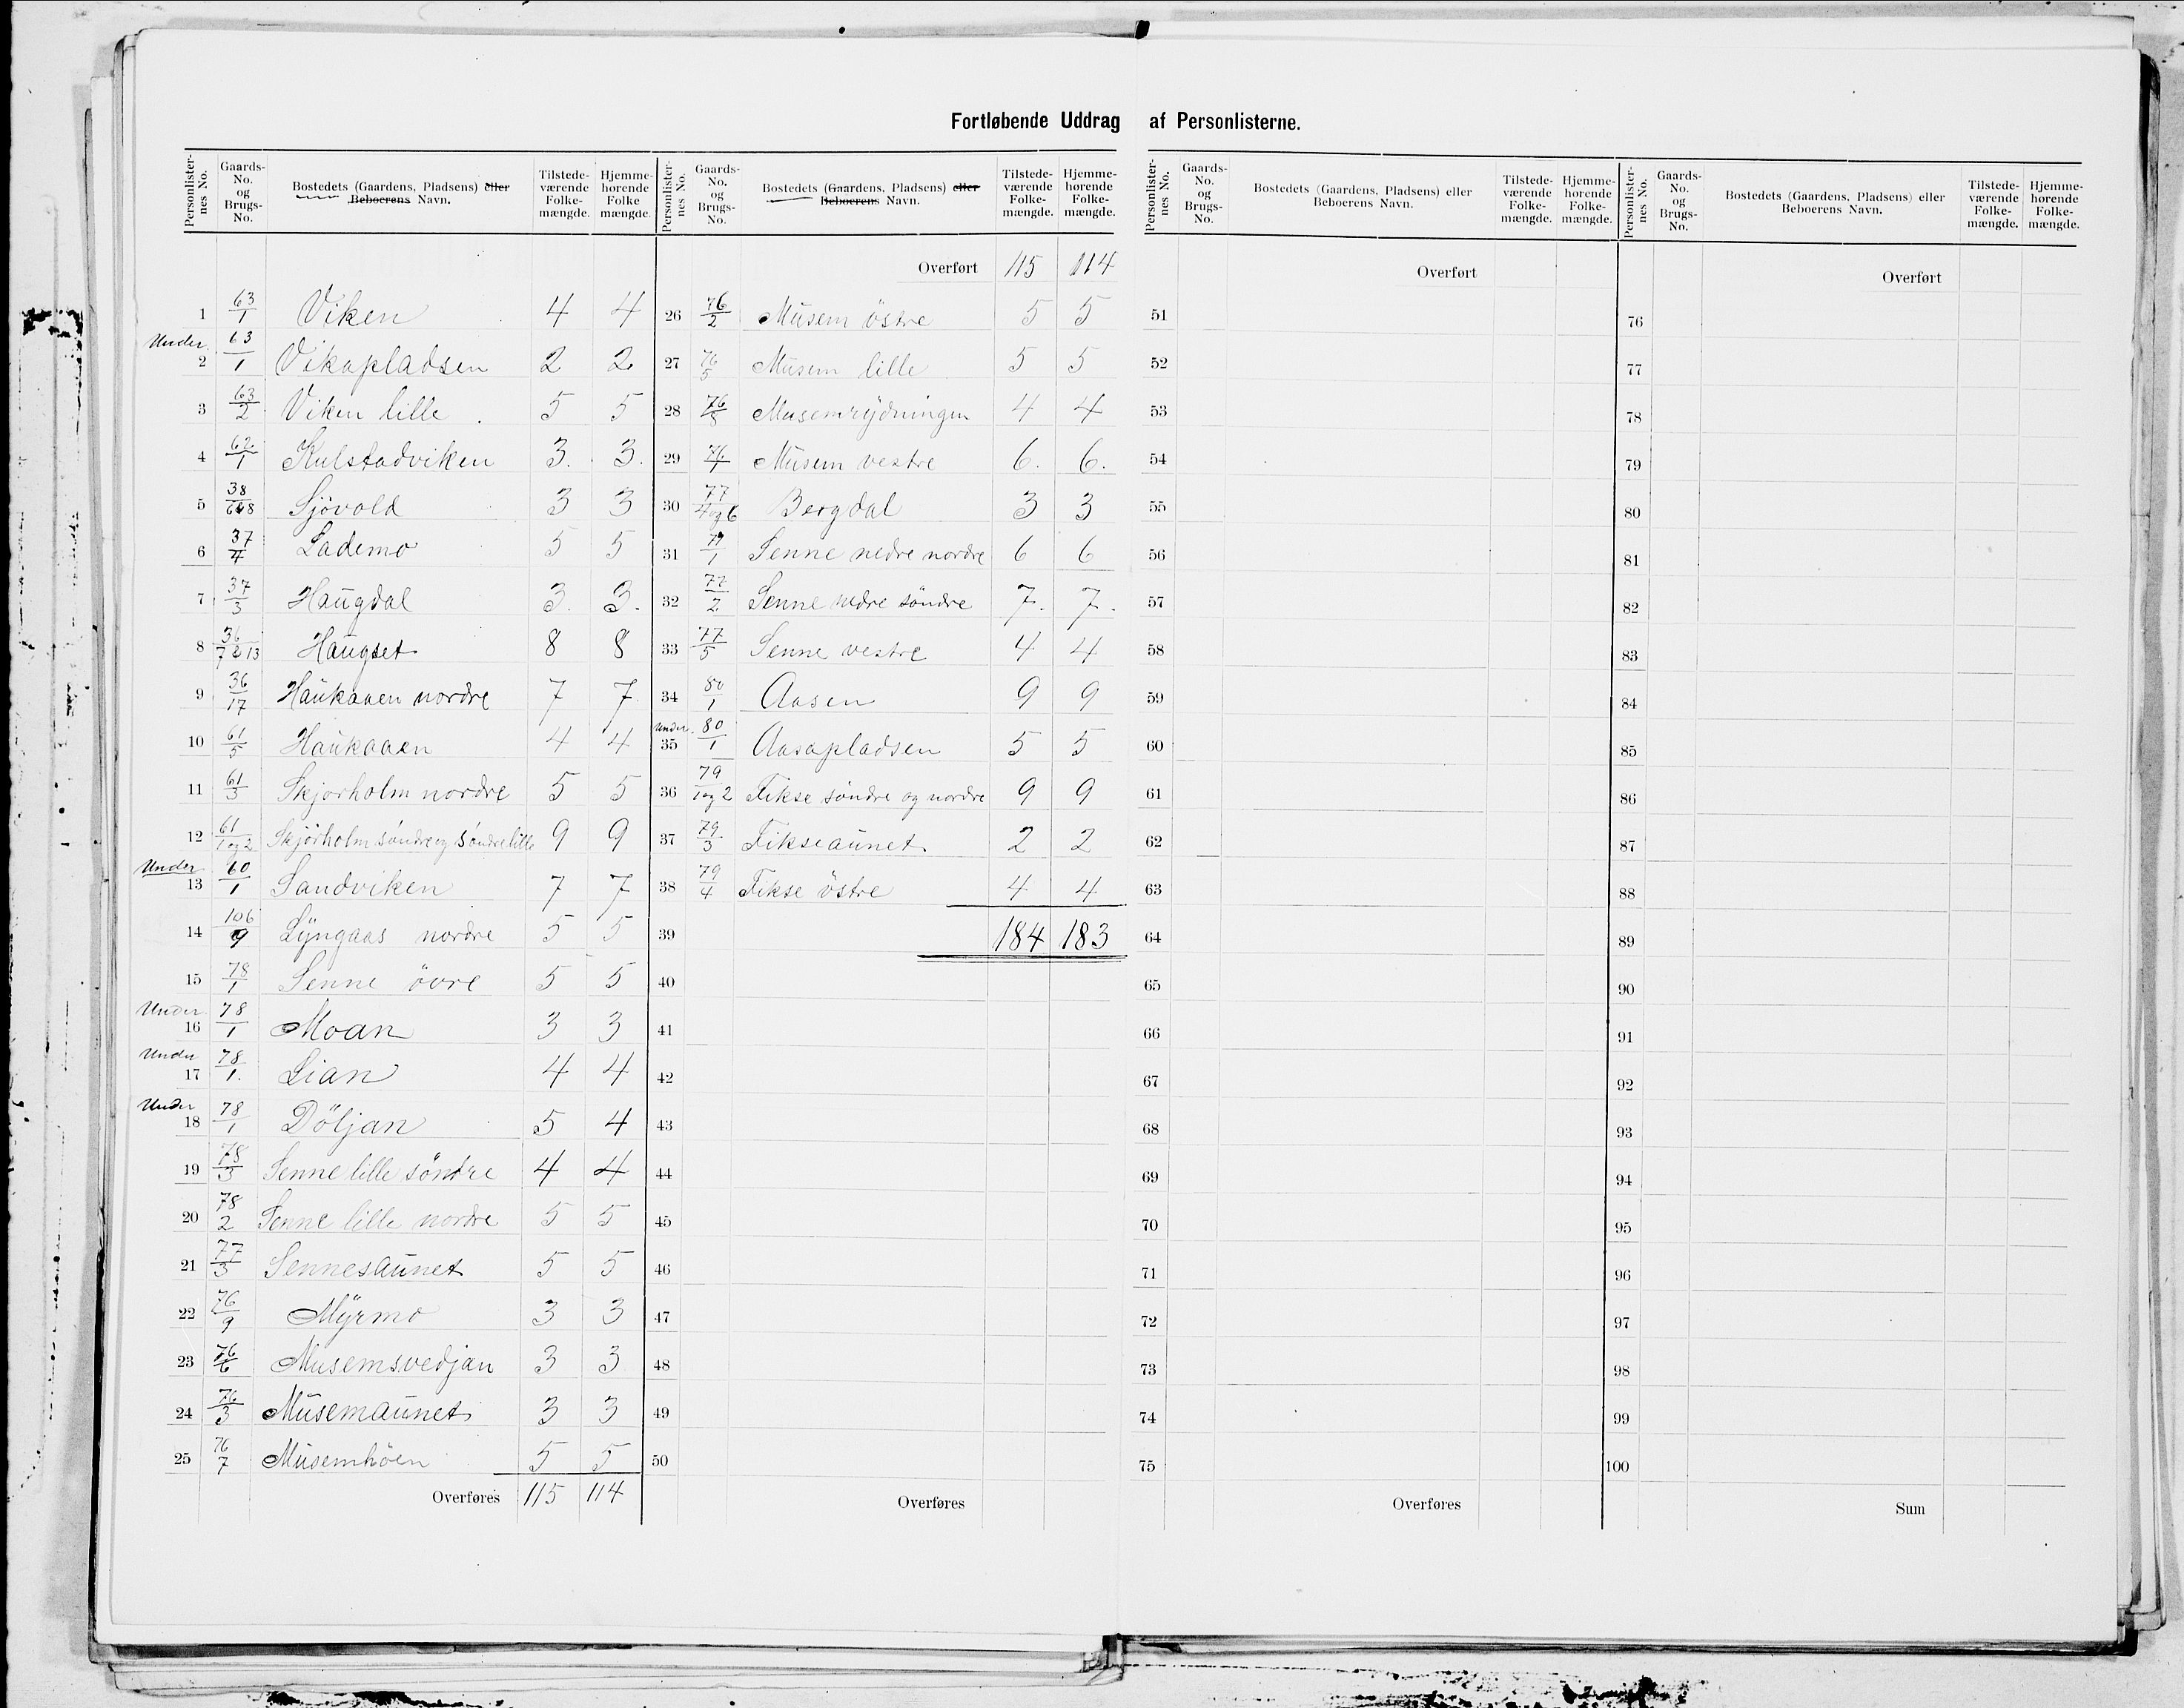 Fortløbende Uddrag af Personlisterne.
Personlister-nes No. Gaards-No. og Brugs-No. Bostedets (Gaardens, Pladsens) eller Beboerens Navn. Tilstede-værende Folke-mængde. Hjemme-hørende Folke mængde.
1 63/1 Viken 4 4
Under 2 63/1 Vikapladsen 2 2
3 63/2 Viken lille 5 5
4 62/1 Kulstadviken 3. 3.
5 38/6&8 Sjövold 3 3
6 37/4 Lademo 5 5
7 37/3 Haugdal 3. 3.
8 36/7 & 13 Haugset 8 8
9 36/17 Haukaaen nordre 7 7
10 61/5 Haukaaen 4 4
11 61/3 Skjorholm nordre 5 5
12 61/1 og 2 Skjörholm söndre og söndre lille 9 9
Under 13 60/1 Sandviken 7 7
14 106/9 Lyngaas nordre 5 5
15 78/1 Senne övre 5 5
Under 16 78/1 Moan 3 3
Under 17 78/1. Lian 4 4
Under 18 78/1 Döljan 5 4
19 78/3 Senne lille söndre 4 4
20 78/2 Senne lille nordre 5 5
21 77/3 Sennesaunet 5 5
22 76/9 Myrmo 3 3
23 76/6 Musemsvedjan 3 3
24 76/3 Musemaunet 3 3
25 76/7 Musemhöen 5 5
Overføres 115 114
Personlister-nes No. Gaards-No. og Brugs-No. Bostedets (Gaardens, Pladsens) eller Beboerens Navn. Tilstede-værende Folke-mængde. Hjemme-hørende Folke-mængde.
Overført 115 114
26 76/2 Musem östre 5 5
27 76/5 Musem lille 5 5
28 76/8 Musemrydningen 4 4
29 76/1 Musem vestre 6. 6.
30 77/4 og 6 Bergdal 3 3
31 77/1 Senne nedre nordre 6 6
32 77/2 Senne nedre söndre 7. 7.
33 77/5 Senne vestre 4 4
34 80/1 Aasen 9 9
Under 35 80/1 Aasapladsen 5 5
36 79/1 og 2 Fikse söndre og nordre 9 9
37 79/3 Fikseaunet 2 2
38 79/4 Fikse östre 4 4
39 184 183
40
41
42
43
44
45
46
47
48
49
50
Overføres
Personlister-nes No. Gaards-No. og Brugs-No. Bostedets (Gaardens, Pladsens) eller Beboerens Navn. Tilstede-værende Folke-mængde. Hjemme-hørende Folke-mængde.
Overført
51
52
53
54
55
56
57
58
59
60
61
62
63
64
65
66
67
68
69
70
71
72
73
74
75
Overføres
Personlister-nes No. Gaards-No. og Brugs-No. Bostedets (Gaardens, Pladsens) eller Beboerens Navn. Tilstede-værende Folke-mængde. Hjemme-hørende Folke-mængde.
Overført
76
77
78
79
80
81
82
83
84
85
86
87
88
89
90
91
92
93
94
95
96
97
98
99
100
Sum